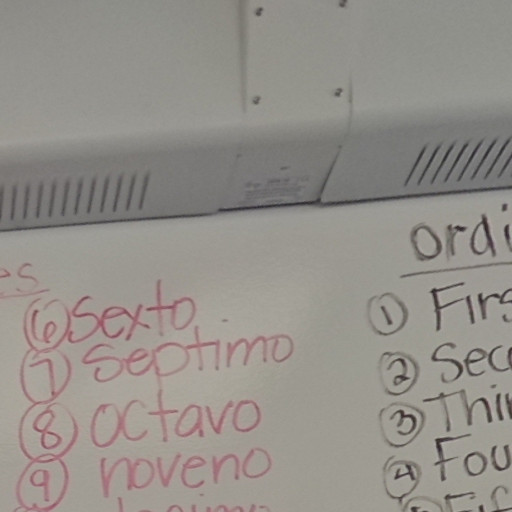 es
⑥ Sexto
⑦ Septimo
⑧ octavo
⑨ noveno
ordi
① Firs
② Sec
③ Thir
④ Fou